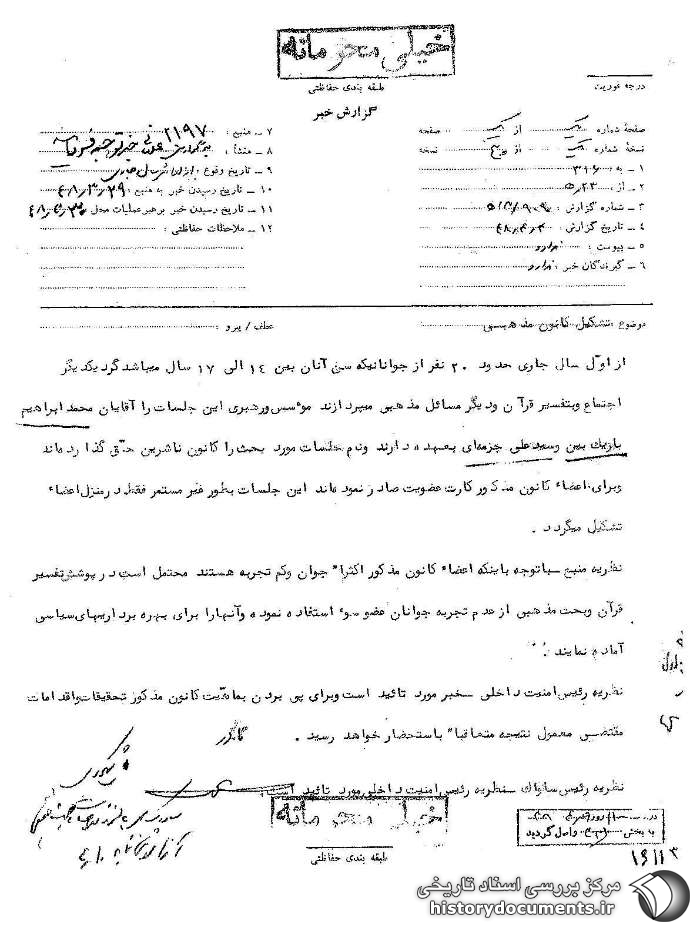 خیلی محرمانه
طبقه بندی حفاظتی
درجه فوریت
گزارش خبر
صفحهٔ شماره یک از یک صفحه
نسخهٔ شماره یک از نسخه
۱ ـ به : ۳۱۶
۲ ـ از : ۵ ر ۲۳
۳ ـ شماره گزارش :
۴ ـ تاریخ گزارش :
۵ ـ پیوست : ندارد
۶ ـ گیرندگان خبر : ندارد
۷ ـ منبع : ۲۱۹۷
۸ ـ منشأ :
۹ ـ تاریخ وقوع : از اول سال جاری
۱۰ ـ تاریخ رسیدن خبر به منبع : ۴۸٫۳٫۲۹
۱۱ ـ تاریخ رسیدن خبر برهبر عملیات محل :
۱۲ ـ ملاحظات حفاظتی :
موضوع : تشکیل کانون مذهبی
عطف / پیرو :
از اول سال جاری حدود ۲۰ نفر از جوانانیکه سن آنان بین ۱۴ الی ۱۷ سال میباشد گرد یکدیگر
اجتماع وبتفسیر قرآن ودیگر مسائل مذهبی میپردازند موسس ورهبری این جلسات را آقایان محمد ابراهیم
باریک بین وسید علی جزمه‌ای بعهده دارند ونام جلسات مورد بحث را کانون ناشرین حق گذارده‌اند
وبرای اعضاء کانون مذکور کارت عضویت صادر نموده‌اند این جلسات بطور غیر مستمر فقط در منزل اعضاء
تشکیل میگردد .
نظریه منبع ـ باتوجه باینکه اعضاء کانون مذکور اکثراً جوان وکم تجربه هستند محتمل است در پوشش تفسیر
قرآن وبحث مذهبی از عدم تجربه جوانان عضو سوء استفاده نموده وآنهارا برای بهره برداریهای سیاسی
آماده نمایند .
نظریه رئیس امنیت داخلی ـ خبر مورد تائید است وبرای پی بردن بماهیت کانون مذکور تحقیقات واقدامات
مقتضی معمول نتیجه متعاقباً باستحضار خواهد رسید .
نظریه رئیس ساواک ـ نظریه رئیس امنیت داخلی مورد تائید است .
خیلی محرمانه
طبقه بندی حفاظتی
به بخش واصل گردید
مرکز بررسی اسناد تاریخی
historydocuments.ir